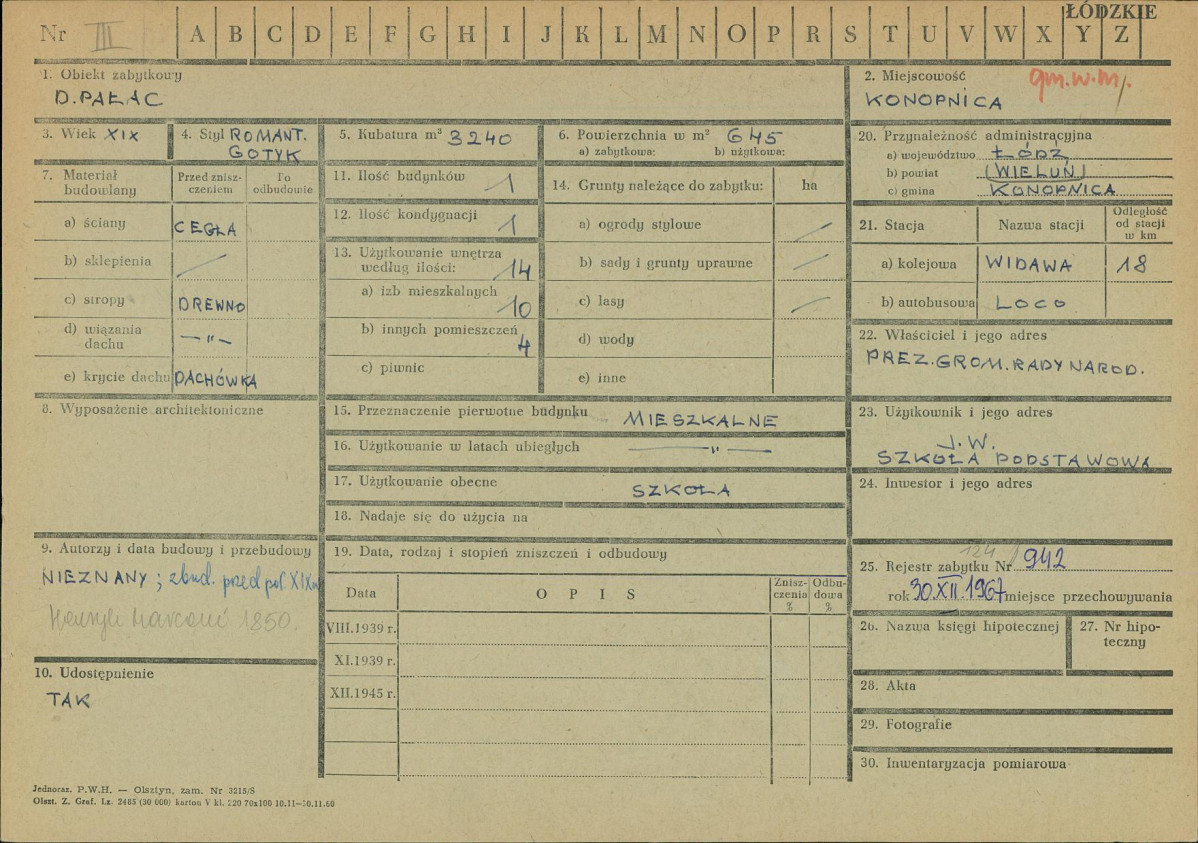 ŁÓDZKIE
Nr III A B C D E F G H I J K L M N O P R S T U V W X Y Z
1. Obiekt zabytkowy
D. PAŁAC
2. Miejscowość gm.w.m/.
KONOPNICA
3. Wiek XIX
4. Styl ROMANT.
GOTYK
5. Kubatura m³ 3240
6. Powierzchnia w m² 645
a) zabytkowa: b) użytkowa:
20. Przynależność administracyjna
a) województwo ŁÓDŹ
b) powiat (WIELUŃ)
c) gmina KONOPNICA
7. Materiał
budowlany
Przed znisz-
czeniem
Po
odbudowie
a) ściany CEGŁA
b) sklepienia —
c) stropy DREWNO
d) wiązania
dachu — " —
e) krycie dachu DACHÓWKA
11. Ilość budynków 1
12. Ilość kondygnacji 1
13. Użytkowanie wnętrza
według ilości: 14
a) izb mieszkalnych
10
b) innych pomieszczeń
4
c) piwnic
14. Grunty należące do zabytku: ha
a) ogrody stylowe —
b) sady i grunty uprawne —
c) lasy —
d) wody
e) inne
21. Stacja Nazwa stacji Odległość
od stacji
w km
a) kolejowa WIDAWA 18
b) autobusowa LOCO
22. Właściciel i jego adres
PREZ. GROM. RADY NAROD.
8. Wyposażenie architektoniczne
15. Przeznaczenie pierwotne budynku MIESZKALNE
16. Użytkowanie w latach ubiegłych — " —
17. Użytkowanie obecne SZKOŁA
18. Nadaje się do użycia na
23. Użytkownik i jego adres
J.W.
SZKOŁA PODSTAWOWA
24. Inwestor i jego adres
9. Autorzy i data budowy i przebudowy
NIEZNANY; zbud. przed poł. XIX w
Henryk Marconi 1850.
10. Udostępnienie
TAK
19. Data, rodzaj i stopień zniszczeń i odbudowy
Data OPIS Znisz-
czenia
%
Odbu-
dowa
%
VIII.1939 r.
XI.1939 r.
XII.1945 r.
124/
25. Rejestr zabytku Nr 942
rok 30.XII.1967 miejsce przechowywania
26. Nazwa księgi hipotecznej
27. Nr hipo-
teczny
28. Akta
29. Fotografie
30. Inwentaryzacja pomiarowa
Jednoraz. P.W.H. — Olsztyn, zam. Nr 3215/S
Olszt. Z. Graf. Lz. 2485 (30 000) karton V kl. 220 70x100 10.11—30.11.60